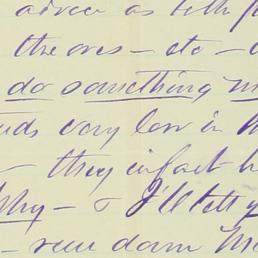 advice as to th
the ores — etc —
do something m
nds very low in
— they in fact h
Why — & I'll tell y
— run down M